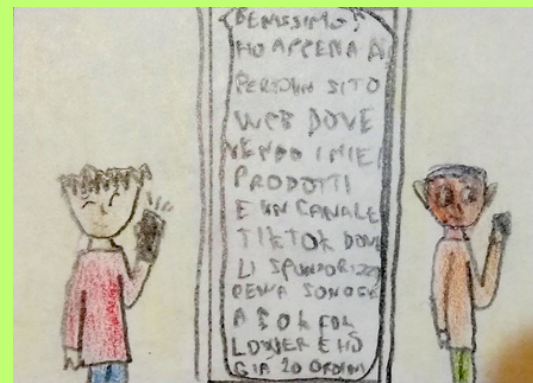 BENISSIMO,
HO APPENA A
PERTO UN SITO
WEB DOVE
VENDO I MIEI
PRODOTTI
E UN CANALE
TIKTOK DOVE
LI SPONSORIZZO
SONO GIÀ
A 50K FOL
LOWER E HO
GIÀ 20 ORDINI